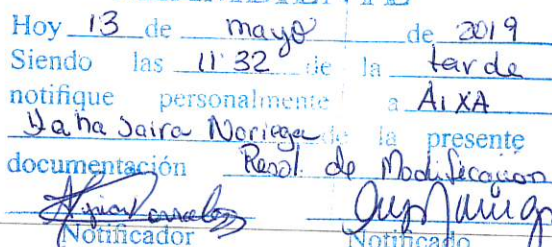 Hoy 13 de mayo de 2019
Siendo las 11:32 de la tarde
notifique personalmente a AiXA
Yaha Saira Noriega de la presente
documentación Resol de Modificacion
Notificador Notificado